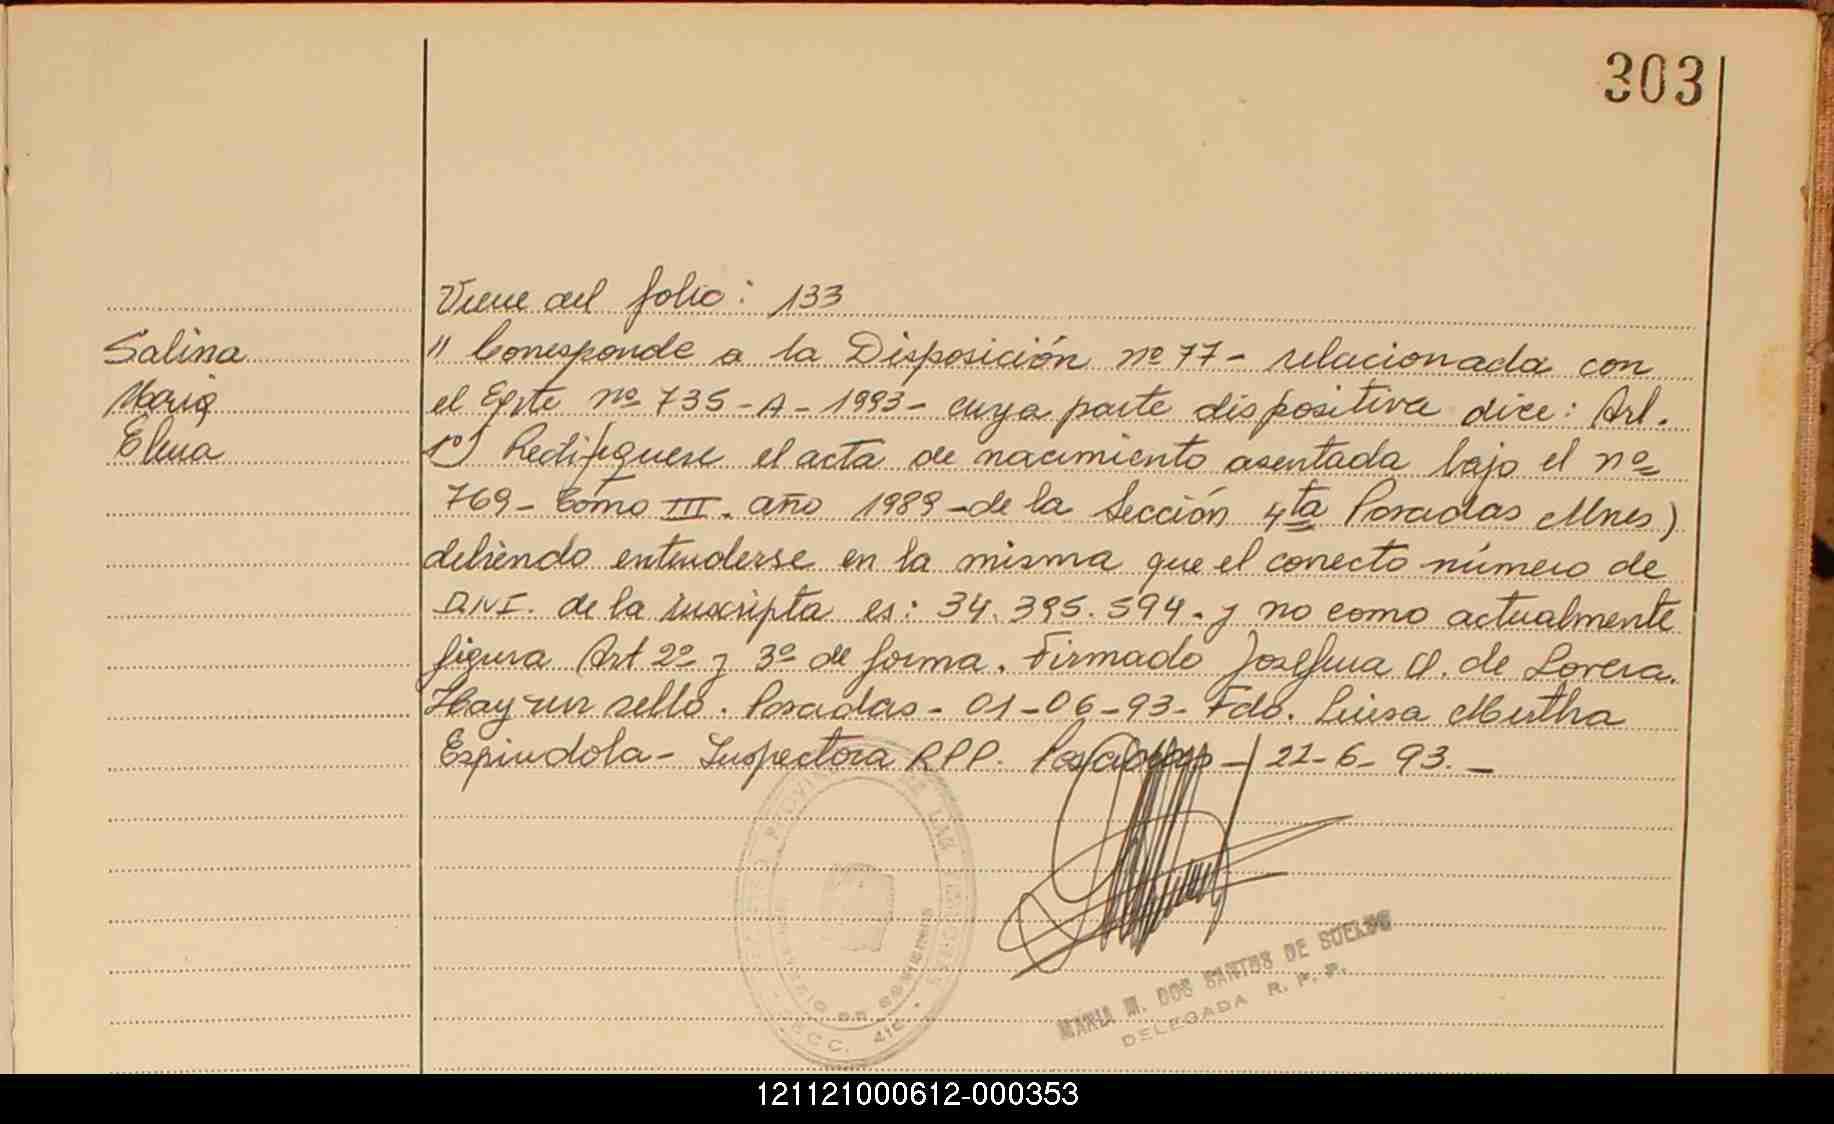 303
Viene del folio: 133
Salina
María
Elena
" Corresponde a la Disposición nº 77 - relacionada con
el Expte nº 735 - A - 1993 - cuya parte dispositiva dice: Art.
1º) Rectifíquese el acta de nacimiento asentada bajo el nº
769 - tomo III. año 1989 - de la Sección 4ta Posadas Mnes)
debiendo entenderse en la misma que el correcto número de
D.N.I. de la inscripta es: 34.395.594. y no como actualmente
figura Art 2º y 3º de forma. Firmado Josefina O. de Lovera.
Hay un sello. Posadas - 01-06-93 - Fdo. Luisa Mirtha
Espindola - Inspectora RPP. Posadas - 22-6-93. -
MARIA M. DOS SANTOS DE SUELDO
DELEGADA R. P. P.
SECC. 4ta.
121121000612-000353